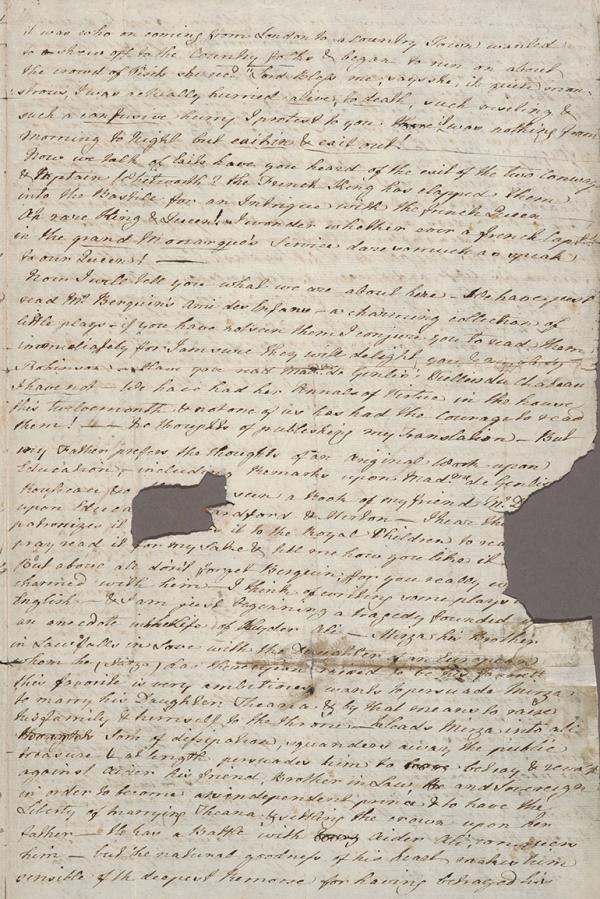 it was who on coming from London to a Country Town wanted
to shew off to the Country folks & began to run on about
the crowd of visits she rec'd "Lord bless me, says she, it is quite mon=
strous, I was actually hurried alive to death, such visiting &
such a confusive hurry I protest to you there was nothing from
Morning to Night but exit in & exit out!
Now we talk of Exits have you heard of the exit of the two Conways
& Captain Chetworth? the French King has clapped them
into the Bastile for an Intrigue with the french Queen
Oh rare King & Queen! I wonder whether ever a french Captain
in the grand Monarque's Service dare so much as speak
to our Queen! —
Now I will tell you what we are about here — We have just
read Mr Berquin's Ami des Enfans — a charming collection of
little plays — if you have not seen them I conjure you to read them
immediately for I am sure they will delight you &
Robinson — Have you read Madme de Genlis' Veillées du Chateau
I have not — We have had her Annals of Virtue in the house
this twelvemonth & not one of us has had the Courage to read
them! — thoughts of publishing my Translation — But
my Father prefers the thoughts of an original Work upon
Education, including Remarks upon Madme de Genlis
Rousseau & seen a Book of my friend Mr D
upon Educa andford & Merton — I hear the
patronizes it it to the Royal Children to rea
pray read it for my sake & tell me how you like it
But above all don't forget Berquin, for you really
charmed with him — I think of writing some plays
English — & I am just beginning a tragedy founded
an anecdote in the life of Hyder Ali — Mirza his Brother
in Law falls in Love with the Daughter of an European
whom he, (Mirza) has therefore raised to be his favorite
this favorite is very ambitious, wants to persuade Mirza
to marry his Daughter Theana & by that means to raise
his family & himself to the throne — leads Mirza into all
Sort of dissipation, squanders away the public
treasure & at length persuades him to betray & revolt
against Aider his friend, Brother in Law, and Sovereign
in order to become an independent prince & to have the
Liberty of marrying Theana & setting the crown upon her
father — He has a Battle with Aider Ali, conquers
him — but the natural goodness of his heart makes him
sensible of the deepest Remorse for having betrayed his